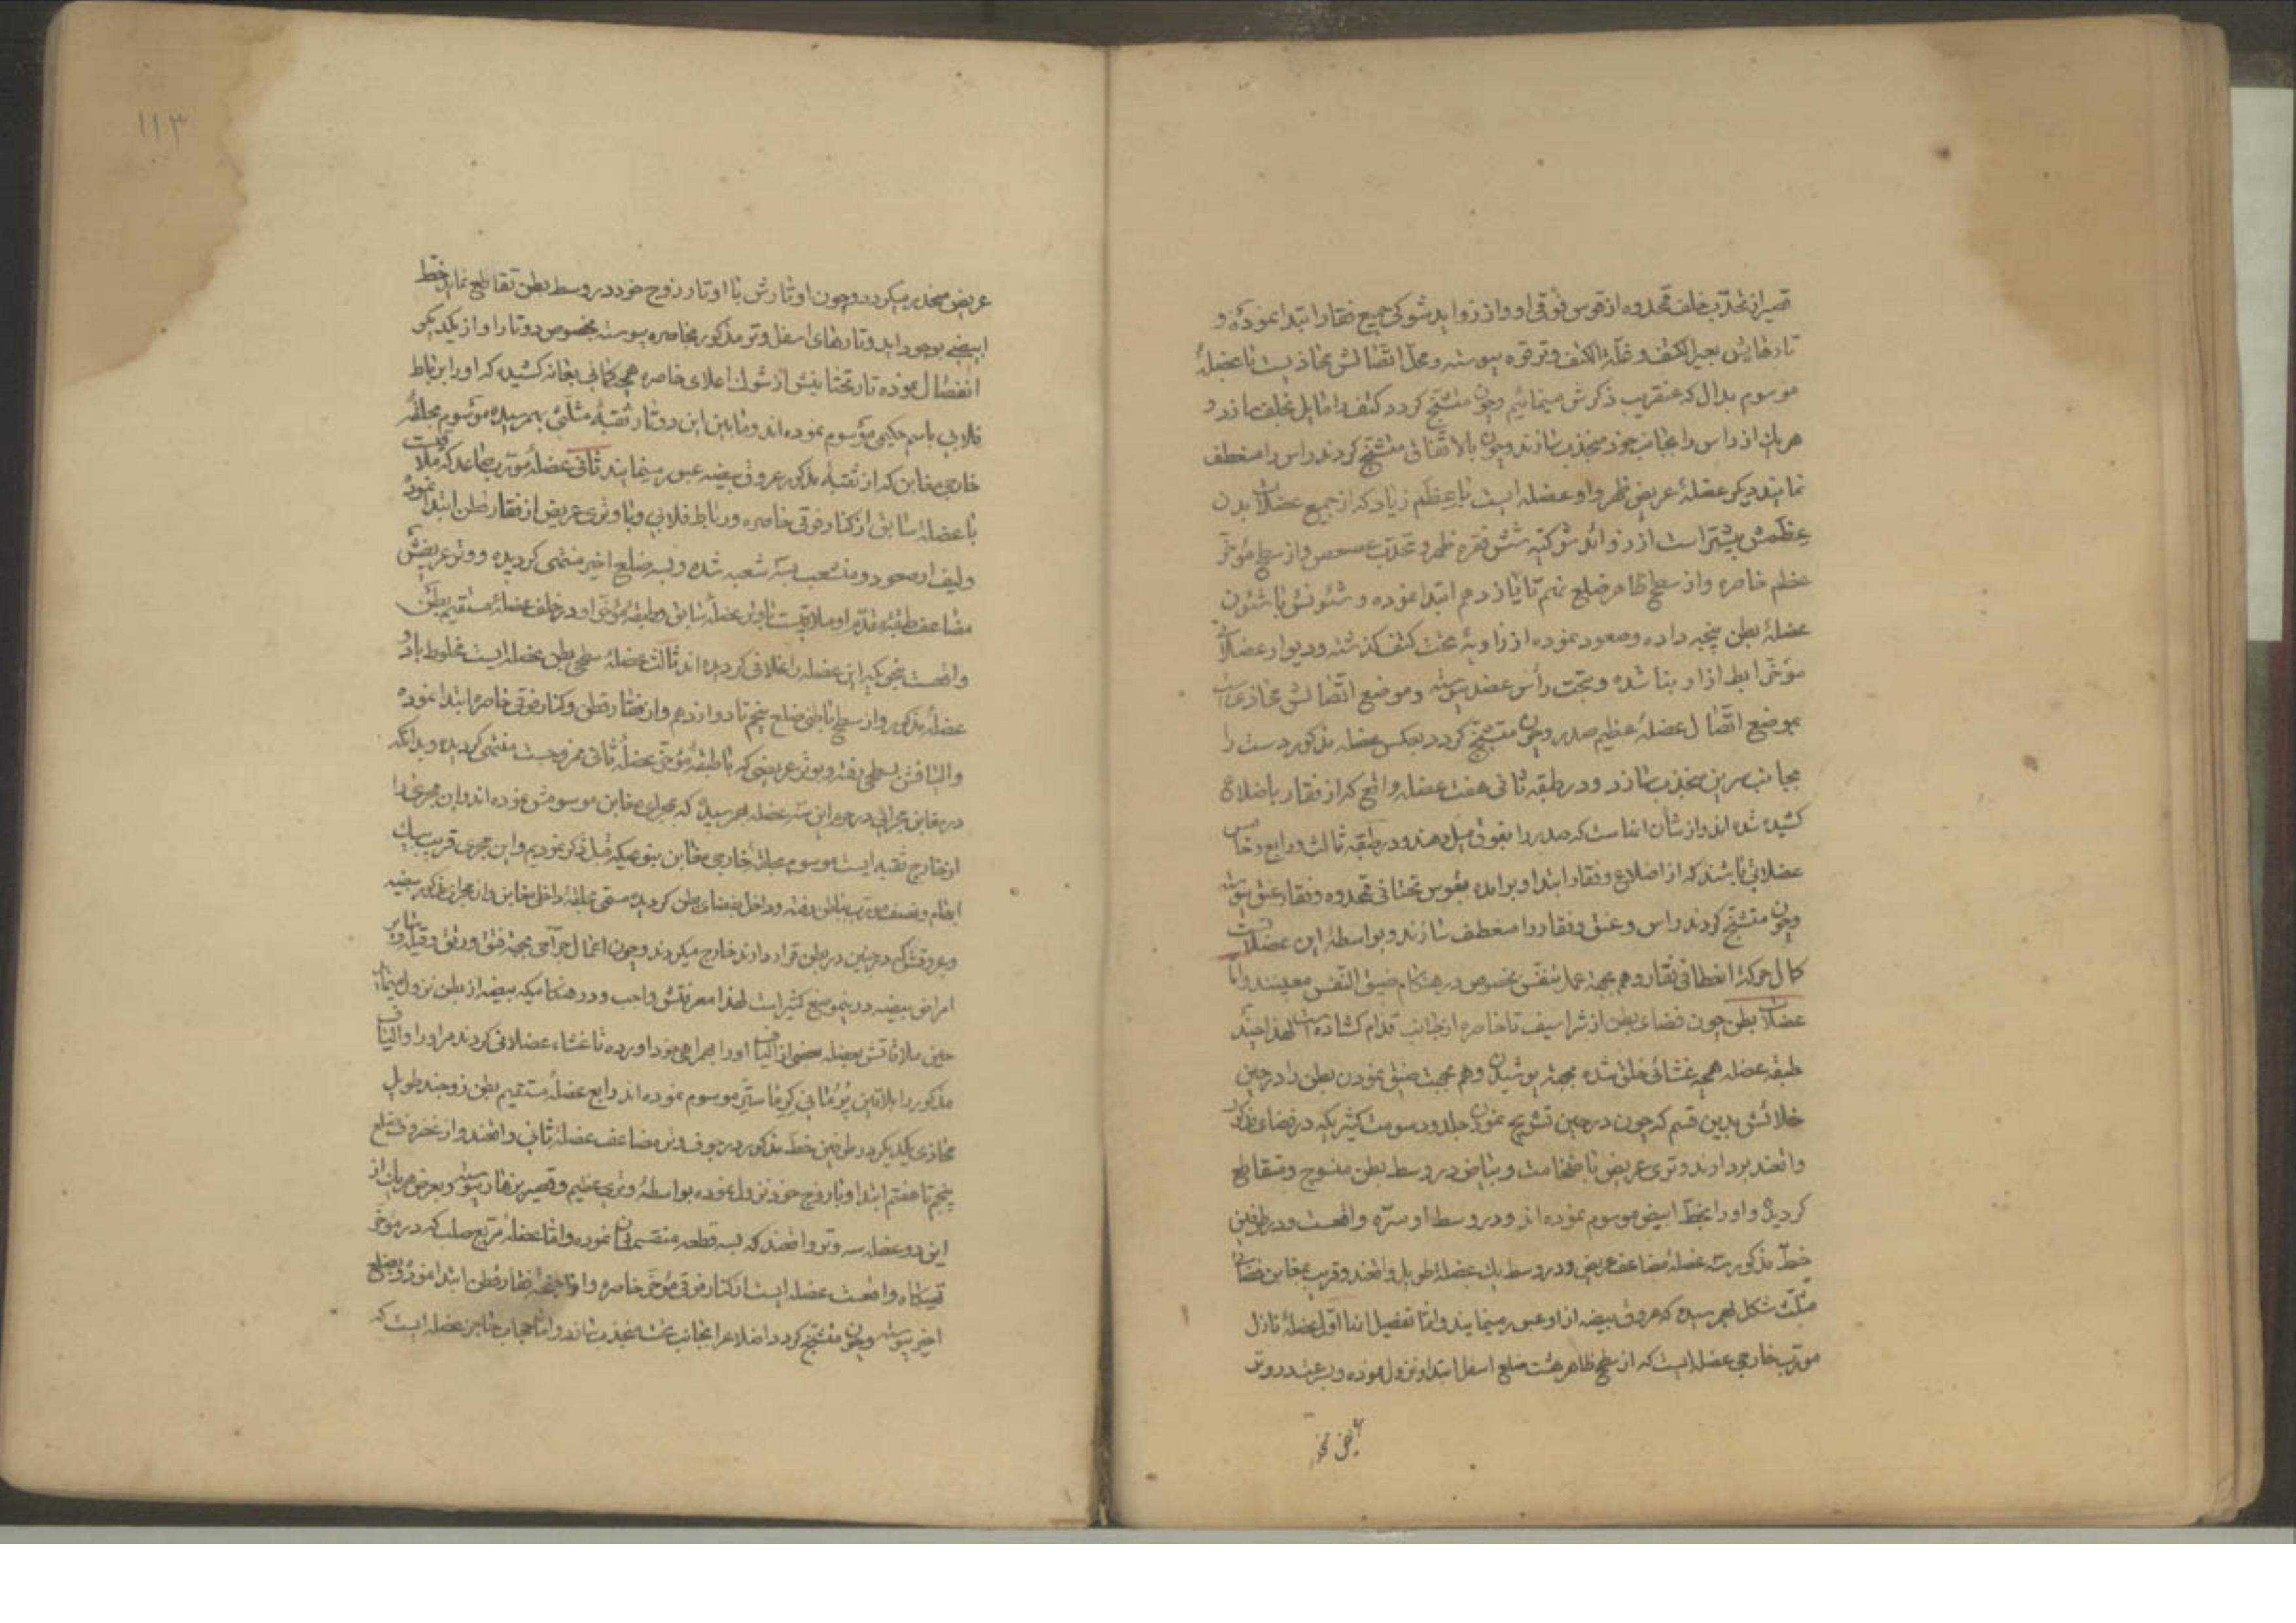 قصیر از تحدّب خلف قمحدوه از قوس فوقی او و از زواید شوکی جمیع فقار ابتدا نموده و
تارهایش بعیر الکتف و قلّة الکتف و ترقوه پیوسته و محلّ اتّصالش محاذیست با عضلۀ
موسوم بدال که عنقریب ذکرش مینمائیم وچون متشنّج کردد کتف را مایل بخلف سازد و
هریك از راس را بجانب خود منجذب سازند وچون بالاتّفاق متشنّج کردند راس را منعطف
نمایند دیکر عضلۀ عریض ظهر و او عضله ایست با عِظَم زیاد که از جمیع عضلات بدن
عِظَمش بیشتر است از زوائد شوکیّه شش فقره ظهر و تحدّب عصعص و از سطح مؤخّر
عظم خاصره و از سطح ظاهر ضلع نهم تا یازدهم ابتدا نموده و شئونش با شئون
عضلۀ بطن پنجه داده وصعود نموده از زاویۀ تحت کتف کذشته و دیوار عضلانی
مؤخّر ابط از او بنا شده و تحت رأس عضد پیوسته وموضع اتّصالش محاذی است
بموضع اتّصال عضلۀ عظیم صدر وچون متشنّج کردد بعکس عضله مذکور دست را
بجانب سرین منجذب سازد ودر طبقه ثانی هفت عضله واقع که از فقار باضلاع
کشیده شده اند و از شأن انهاست که صدر را بفوق میل دهند و در طبقه ثالث و رابع و خامس
عضلاتی باشند که از اضلاع و فقار ابتدا و برامده بقوس تحتانی قمحدوه و فقار عنق پیوسته
وچون متشنّج کردند راس و عنق و فقار را منعطف سازند و بواسطۀ این عضلاتست
کمال حرکۀ انعطافی فقار و هم بجهة عمل تنفّس بخصوص در هنکام ضیق النّفس معینند و امّا
عضلات بطن چون فضای بطن از شراسیف تا خاصره از جانب قدام کشاده است لهذا چند
طبقه عضله همچه غشائی خلق شده بجهة پوشیدن وهم بجهت ضیق نمودن بطن را در حین
خلائش بدین قسم که چون در حین تشریح نمودن جلد و دسومت کثیر یکه در فضای مذکور
واقعند بردارند وتری عریض با ضخامت و بیاض در وسط بطن منسوج و متقاطع
کردیده و او را بخطّ ابیض موسوم نموده اند و در وسط او سرّه واقعست و در طرفین
خطّ مذکور سه عضلۀ مضاعف عریض و در وسط یك عضلۀ طویل واقعند و قریب بمغابن فضائی
مثلّث شکل بهم رسیده که عروق بیضه از او عبور مینمایند و امّا تفصیل انها اوّل عضلۀ نازل
مورّب خارجی عضله ایست که از سطح ظاهر هشت ضلع اسفل ابتدا و نزول نموده و بسرعت در وتر
عریض منجذر
۱۱۳
عریض منجذر میکردد وچون اوتارش با اوتار زوج خود در وسط بطن تقاطع نماید خطّ
ابیضی بوجود اید و تارهای اسفل وتر مذکور بخاصره پیوسته بخصوص دو تار او از یکدیکر
انفصال نموده تار تحتانیش از شوك اعلای خاصره همچه کمانی بعانه کشیده که او را برباط
فلابی باسم حکیمی مؤسوم نموده اند و مابین این دو تار ثقبۀ مثلّثی بهم رسیده موسوم بحلقۀ
خارجی مغابن که از ثقبۀ مذکور عروق بیضه عبور مینمایند ثانی عضلۀ مورّب صاعد که ملاقیست
با عضلۀ سابق از کنار فوقی خاصره و رباط فلابی و با وتری عریض از فقار قطن ابتدا نموده
و لیف او صعود و منشعب بسه شعبه شده و بسه ضلع اخیر منتهی کردیده و وتر عریضش
مضاعف طبقۀ مقدّم او ملاقیست با وتر عضلۀ سابق و طبقۀ مؤخّر او در خلف عضلۀ مستقیم بطن
واقعست بنحویکه این عضله را غلافی کردیده اند ثالث عضلۀ سطحی بطن عضله ایست مخلوط با دو
عضلۀ مذکور و از سطح باطنی ضلع پنجم تا دوازدهم و از فقار قطن و کنار فوقی خاصره ابتدا نموده
و الیافش بسطحی رفته و بوتر عریضی که با طبقۀ مؤخّر عضلۀ ثانی ممزوجست منتهی کردیده و بدانکه
در مغابن مجرایی در جرم این سه عضله بهم رسیده که بمجرای مغابن موسومش نموده اند و این مجری را
از خارج ثقبه ایست موسوم بحلقۀ خارجی مغابن بنوعیکه قبل ذکر نمودیم و این مجری قریب بیك
ابهام و نصف مورّب بباطن رفته و داخل بفضای بطن کردیده مسمّی بحلقۀ داخل مغابن و از مجرای مذکور بیضه
و عروقش که در جنین در بطن قرار دارند خارج میکردند وچون اعمال جرّاحی بجهة فتق و رتق و قیله و سایر
امراض بیضه در ینموضع کثیر است لهذا معرفتش واجب و در هنکامیکه بیضه از بطن نزول مینماید
حین ملاقاتش بعضله بعضی از الیاف او را همراهی خود اورده تا غشاء عضلانی کردند مر او را و الیاف
مذکور را بلاتین موسوم نموده اند رابع عضلۀ مستقیم بطن زوجند طویل
محاذی یکدیکر در طرفین خطّ مذکور در جوف وتر مضاعف عضلۀ ثانی واقعند و از غضروف ضلع
پنجم تا هفتم ابتدا و با زوج خود نزول نموده بواسطۀ وتری عظیم و قصیر بزهار پیوسته و بعرض هریك از
این دو عضله سه وتر واقعند که بسه قطعه منقسم شان نموده و امّا عضلۀ مربّع صلب که در مؤخّر
تهیکاه واقعست عضله ایست از کنار فوقی مؤخّر خاصره و از اجنحۀ فقار قطن ابتدا نموده و بضلع
اخیر پیوسته وچون متشنّج کردد اضلاع را بجانب تحت منجذب سازد و امّا حجاب حاجز عضله ایست که